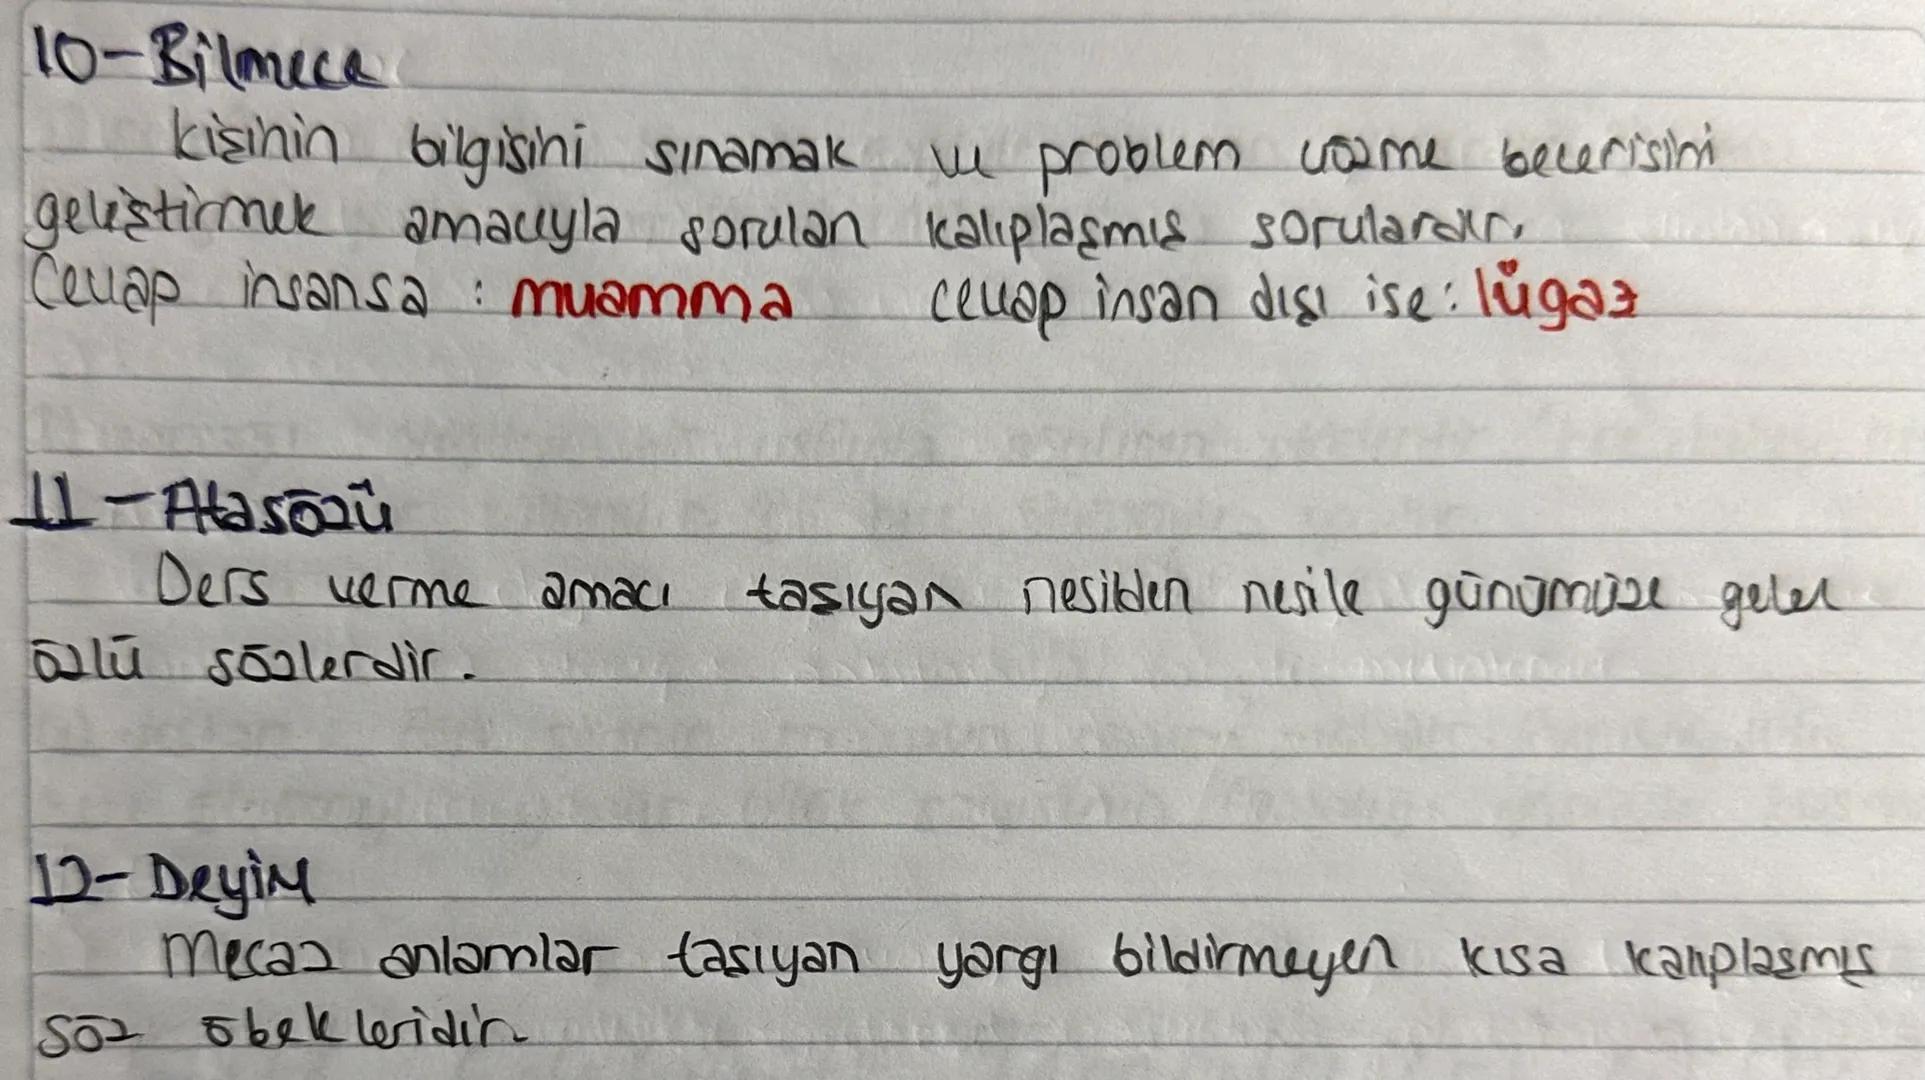 10-Bilmece
kişinin bilgisini sınamak ve problem çözme becerisini
geliştirmek amacıyla sorulan kalıplaşmış sorulardır.
Cevap insansa : muamma cevap insan dışı ise: lügaz
11-Atasözü
Ders verme amacı taşıyan nesilden nesile günümüze gelen
özlü sözlerdir.
12-Deyim
Mecaz anlamlar taşıyan yargı bildirmeyen kısa kalıplaşmış
söz öbekleridir